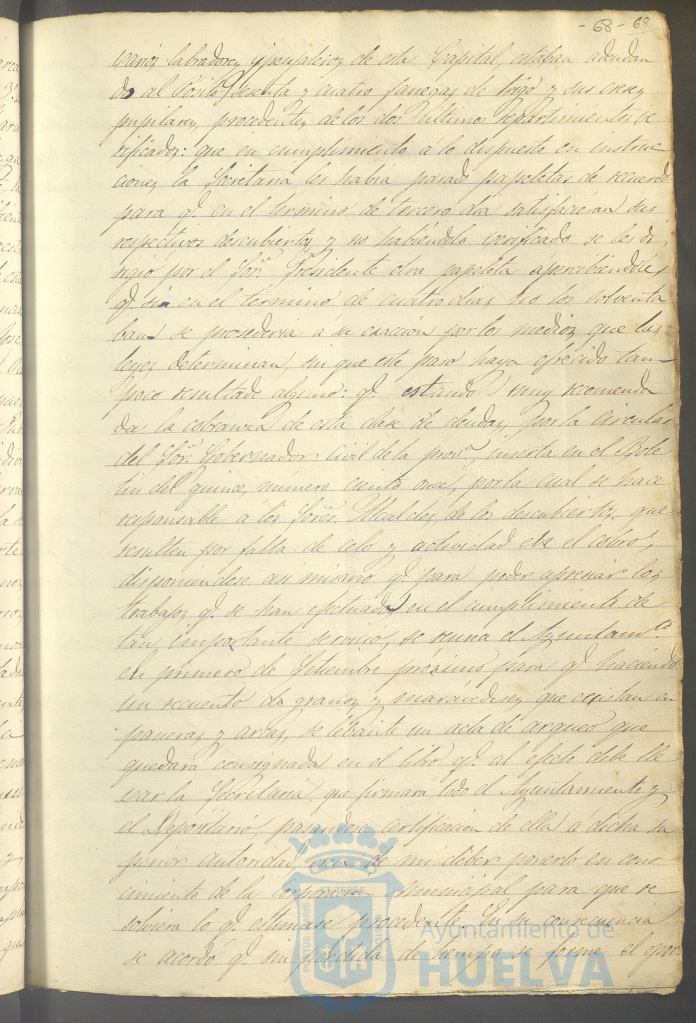 - 68 - 68
varios labradores y pensaleros de esta Capital, estaban adeudan
do al Posito sesenta y cuatro fanegas de trigo y sus creses
pupilares, procedentes de los dos ultimos repartimientos ve
rificados: que en cumplimiento a lo dispuesto en instruc
ciones la Secretaria les habia pasado papeletas de recuerdo
para q.e en el termino de tercero dia satisfacieran sus
respectivos descubiertos, y no habiendolo verificado se les di
rigió por el Sor. Presidente otra papeleta apercibiendoles
q.e si en el termino de cuatro dias no los solventa
ban se procederia a su exaccion por los medios que las
leyes determinan, sin que este paso haya ofrecido tam
poco resultado alguno: q.e estando muy recomenda
da la cobranza de esta clase de deudas, por la Circular
del Sor. Gobernador Civil de la prov.a, inserta en el Bole
tin del quince, numero ciento once, por la cual se hace
responsable a los Sores. Alcaldes, de los descubiertos, que
resulten por falta de celo y actividad en el cobro,
disponiendose asi mismo q.e para poder apreciar los
trabajos q.e se han efectuado en el cumplimiento de
tan importante servicio, se reuna el Ayuntam.to
en primero de Setiembre próximo para q.e haciendo
un recuento de granos y maravedises que existan en
paneras y arcas, se lebante un acta de arqueo que
quedará consignada en el libro q.e al efecto debe lle
var la Secretaria, que firmara todo el Ayuntamiento y
el Depositario, pasandose certificacion de ella a dicha su
perior autoridad, era de mi deber ponerlo en cono
cimiento de la corporacion municipal para que re
solviera lo q.e estimase procedente. En su consecuencia
se acordó q.e sin perdida de tiempo se forme el espe
Ayuntamiento de
HUELVA